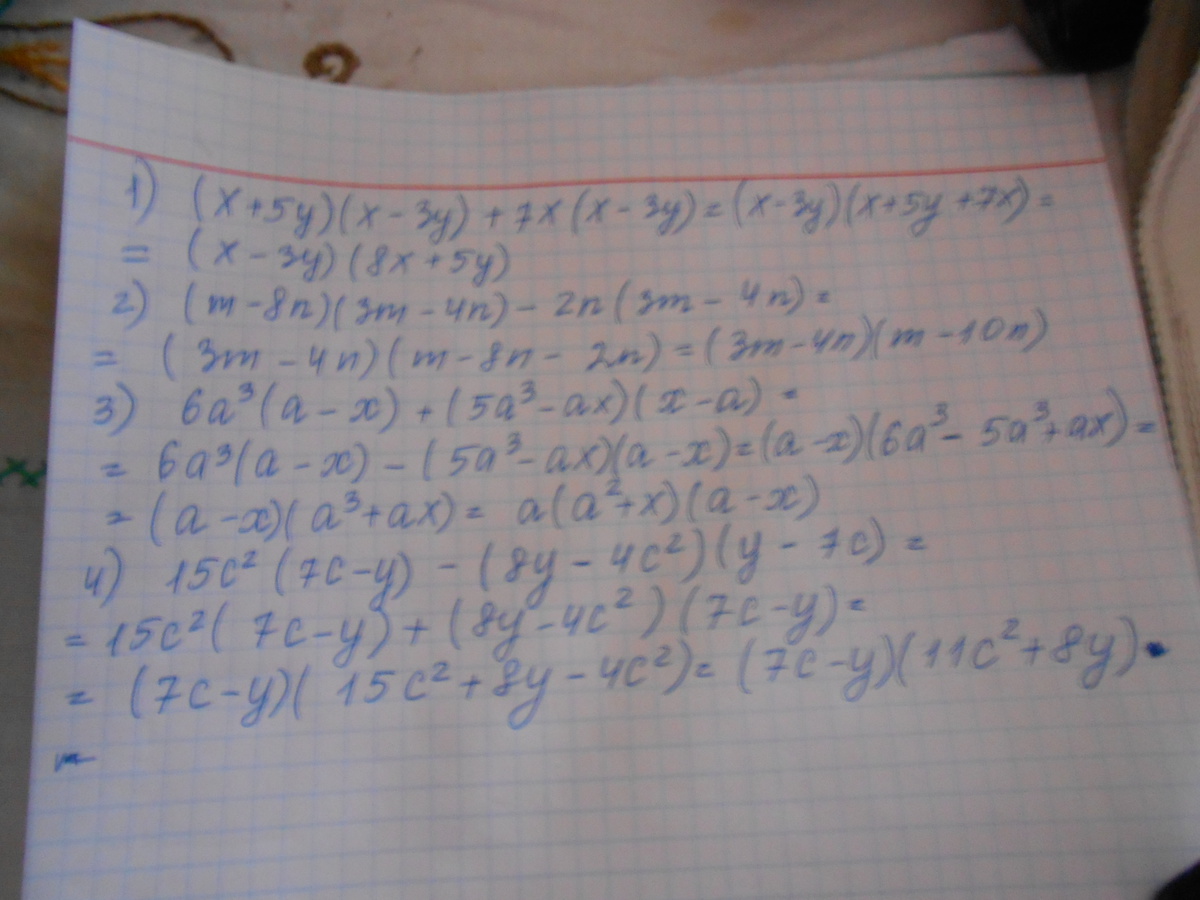 1) (x+5y)(x-3y)+7x(x-3y)=(x-3y)(x+5y+7x)=
= (x-3y)(8x+5y)
2) (m-8n)(3m-4n)-2n(3m-4n)=
= (3m-4n)(m-8n-2n)=(3m-4n)(m-10n)
3) 6a³(a-x)+(5a³-ax)(x-a)=
= 6a³(a-x)-(5a³-ax)(a-x)=(a-x)(6a³-5a³+ax)=
= (a-x)(a³+ax)= a(a²+x)(a-x)
4) 15c²(7c-y)-(8y-4c²)(y-7c)=
= 15c²(7c-y)+(8y-4c²)(7c-y)=
= (7c-y)(15c²+8y-4c²)=(7c-y)(11c²+8y)